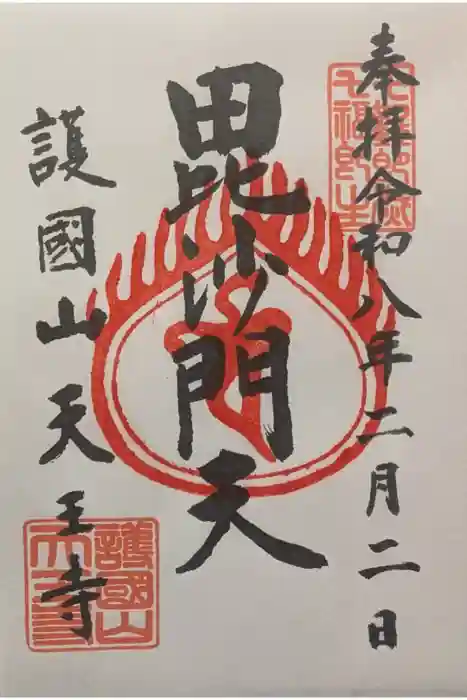 奉拝令和八年二月二日
毘沙門天
護國山天王寺
護國山
天王寺